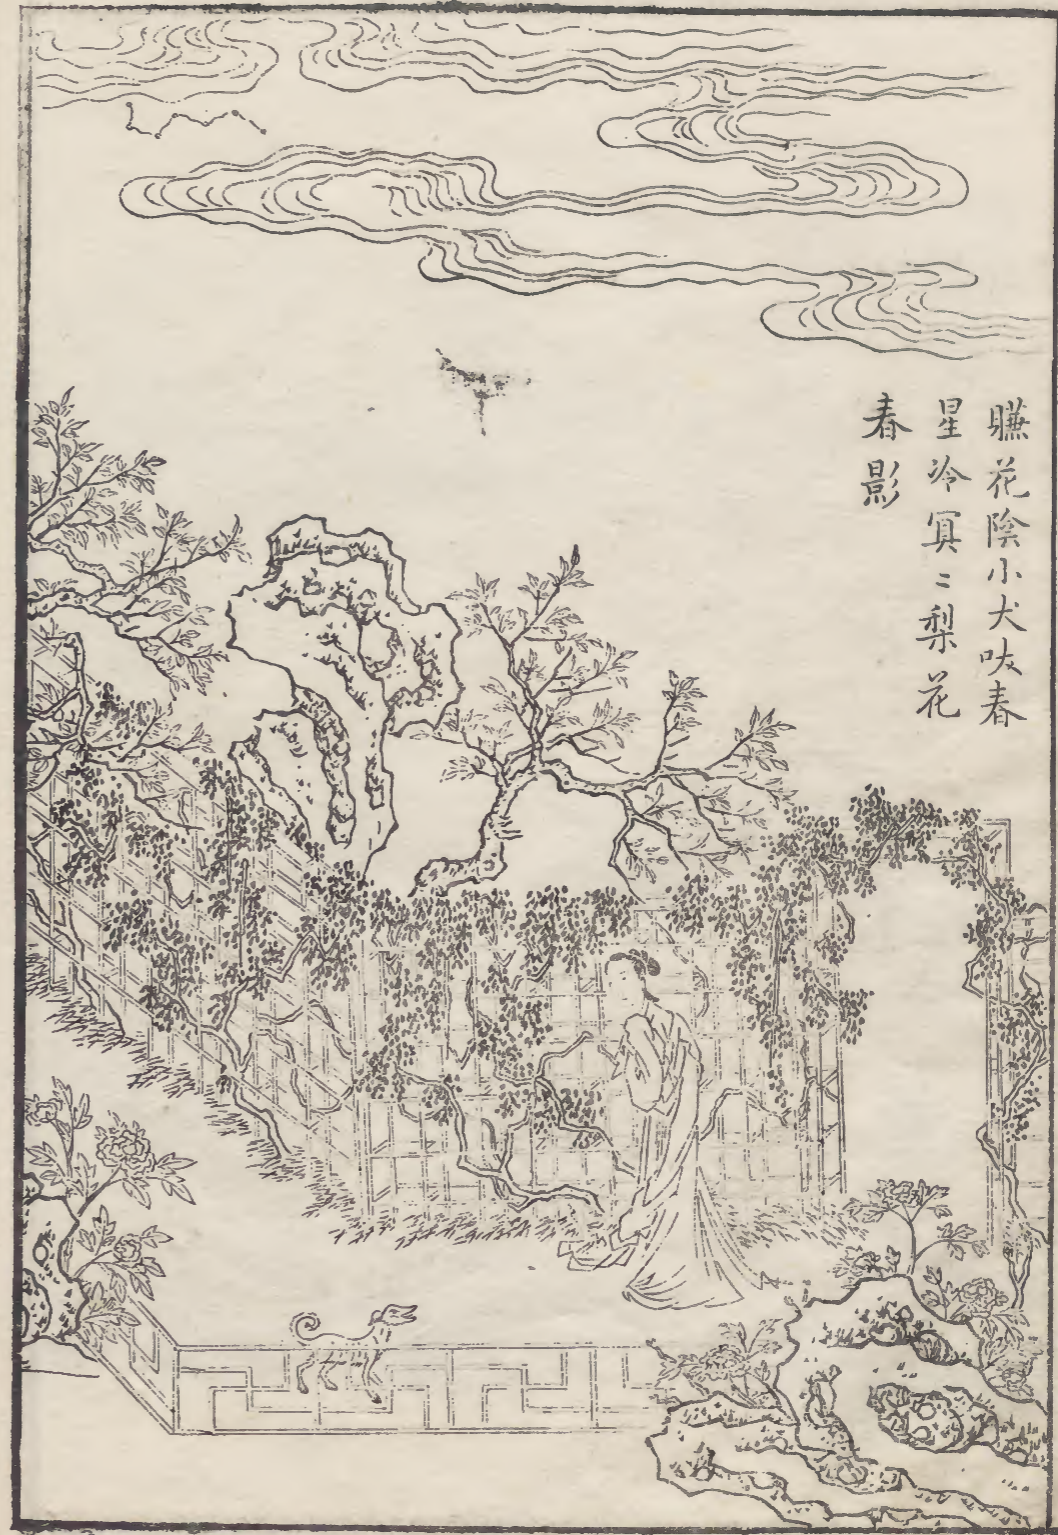 賺花陰小犬吠春
星冷㝠〻梨花
春影